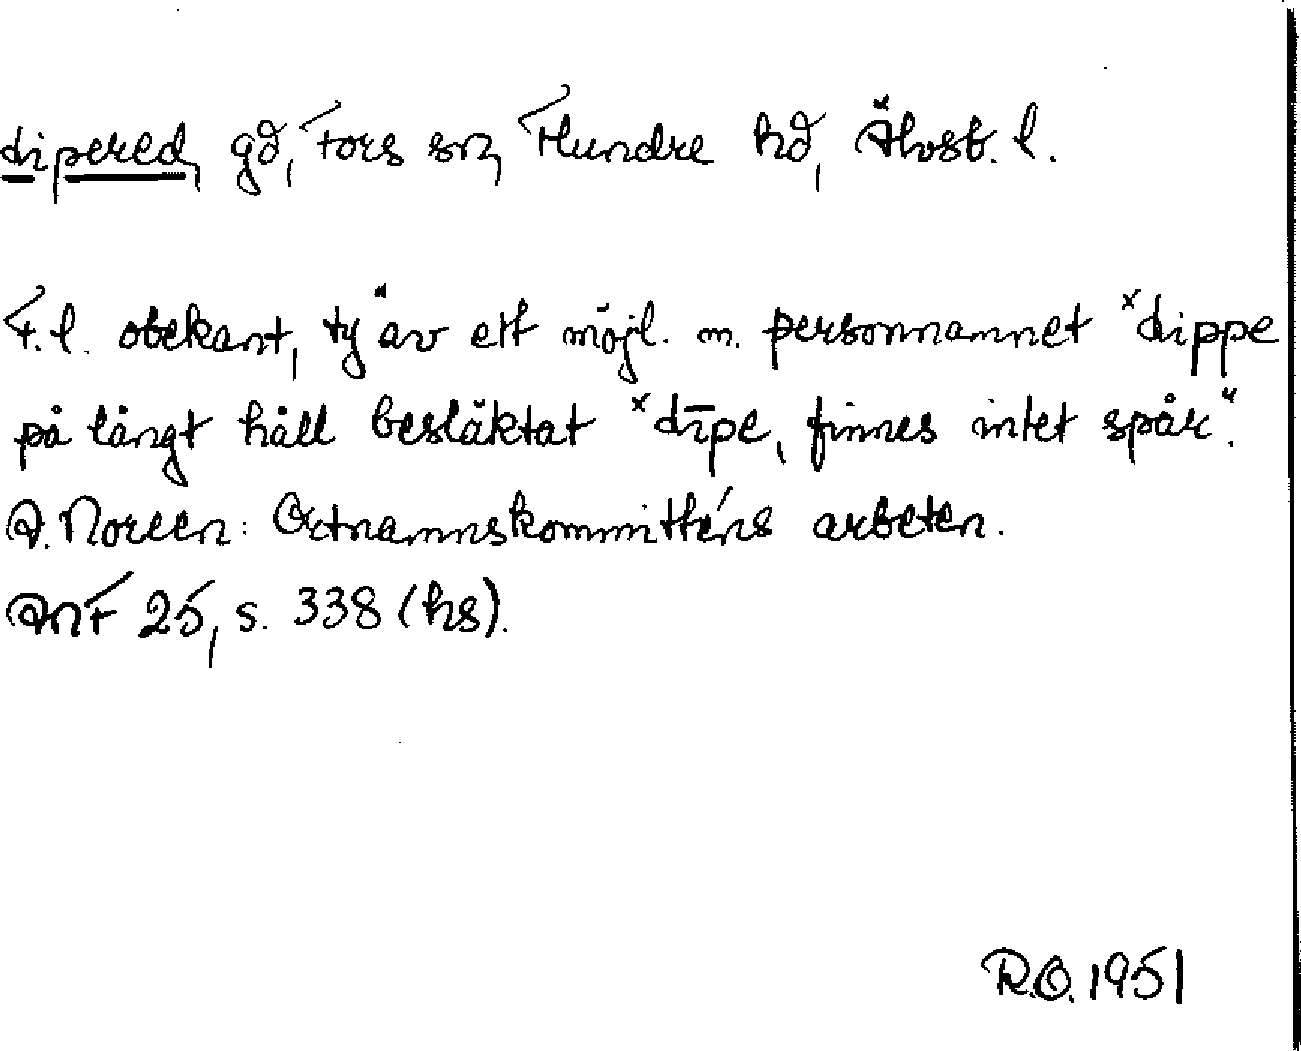 dipered, gd, Fors sn, Flundre hd, Älvsb. l.
F. l. obekant, ty "av ett möjl. m. personnamnet *dippe
på långt håll besläktat *dīpe, finnes intet spår".
A. Noreen: Ortnamnskommitténs arbeten.
ANF 25, s. 338 (hs).
R.O. 1951